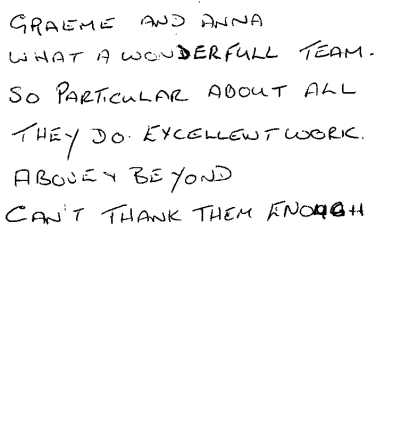 GRAEME AND ANNA
WHAT A WONDERFULL TEAM.
SO PARTICULAR ABOUT ALL
THEY DO. EXCELLENT WORK.
ABOVE + BEYOND
CAN'T THANK THEM ENOUGH